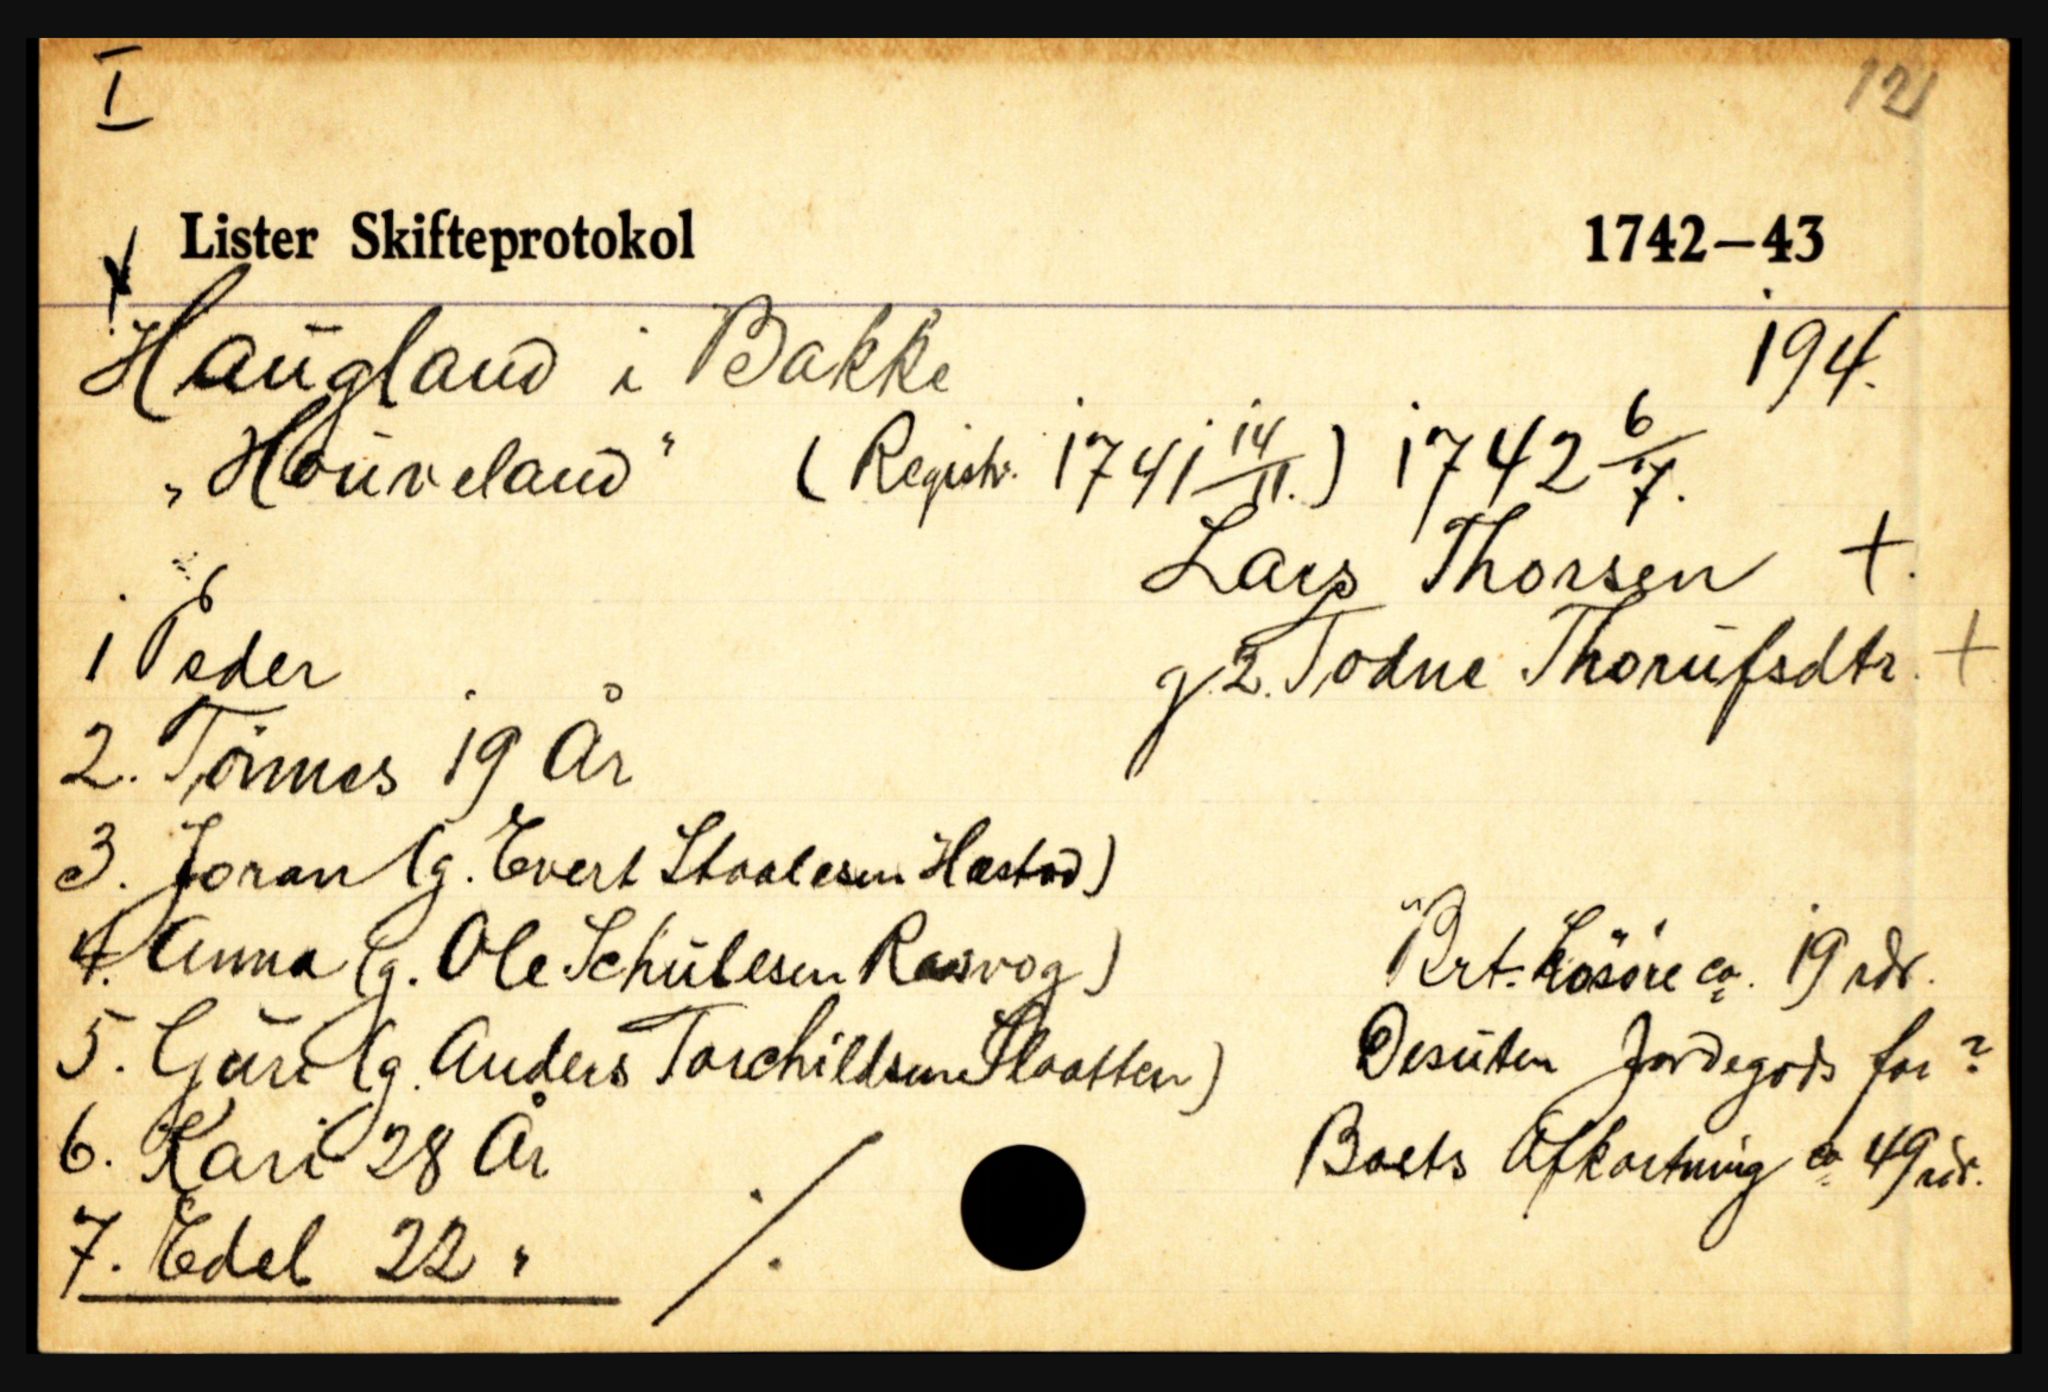 I
121
Lister Skifteprotokol 1742–43
Haugland i Bakke 194.
„Houveland" (Registr. 1741 14/11.) 1742 6/7.
Lars Thorsen +.
1 Peder g. 2. Todne Thorufsdtr. +
2. Tönnes 19 År
3. Joran (g. Evert Staalesen Hæstad)
4. Anna (g. Ole Schulesen Rasvog)
Brt. Lösöre ca. 19 rdr.
5. Guri (g. Anders Torchildsen Slaatten)
Desuten Jordegods for ?
6. Kari 28 År
Boets Afkortning ca 49 rdr.
7. Edel 22 "